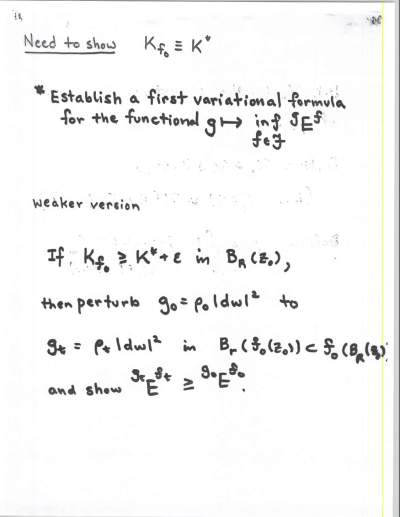 Need to show K_{f_0} ≡ K*
* Establish a first variational formula
for the functional g ↦ inf ^{g}E^{f}
f∈F
Weaker version
If K_{f_0} ≥ K* + ε in B_R(z_0),
then perturb g_0 = ρ_0|dw|² to
g_t = ρ_t|dw|² in B_r(f_0(z_0)) ⊂ f_0(B_R(z_0)
and show ^{g_t}E^{f_t} ≥ ^{g_0}E^{f_0}.